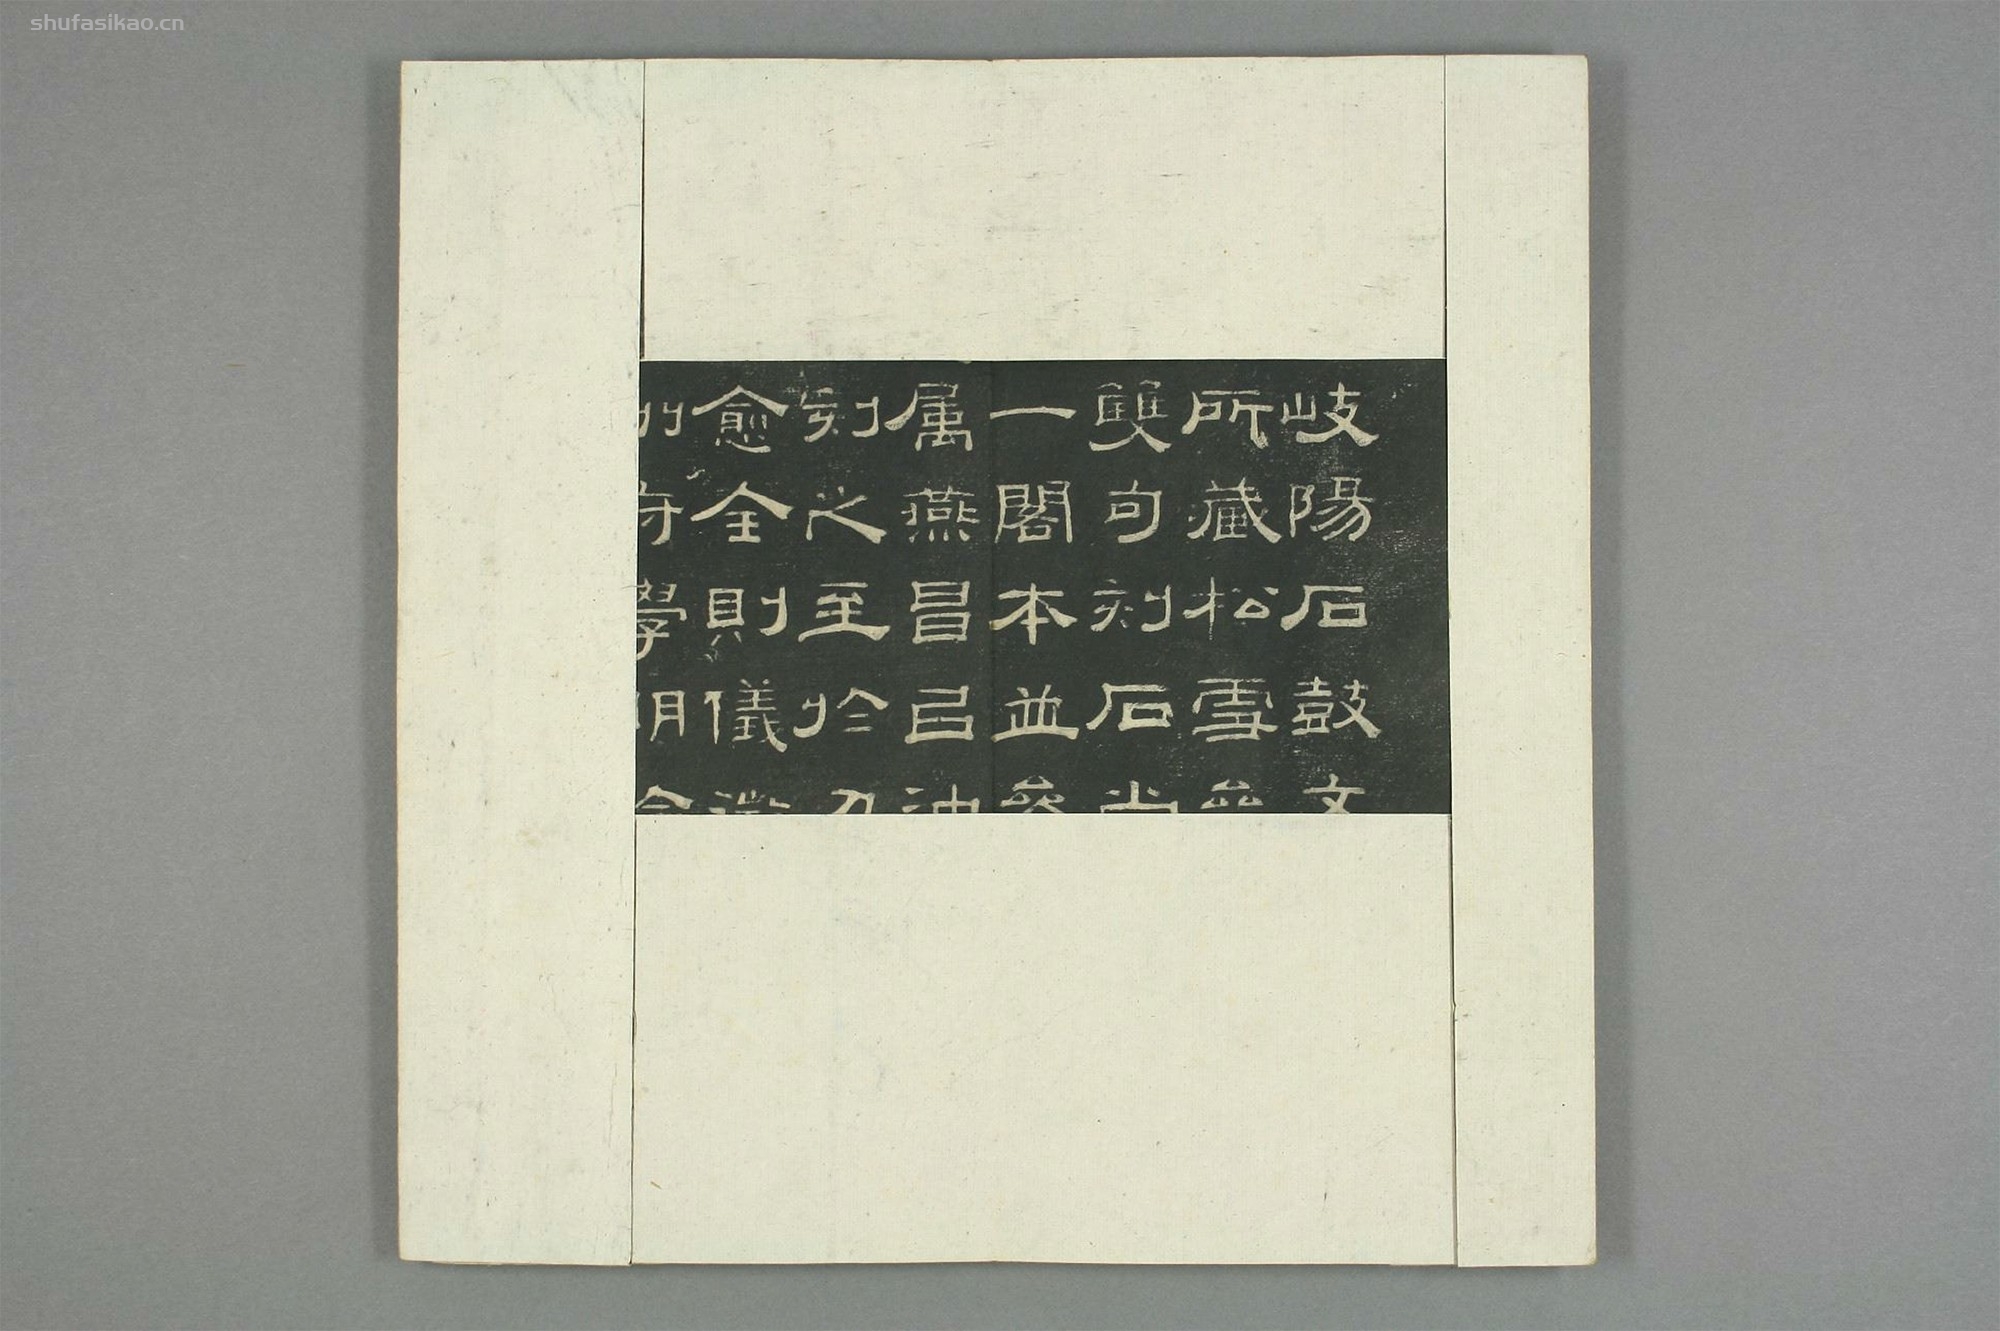 shufasikao.cn
岐陽石鼓文
所藏松雪
雙句刻石尚
一閣本並參
属燕昌㠯油
刻之至於
愈全則儀
學明